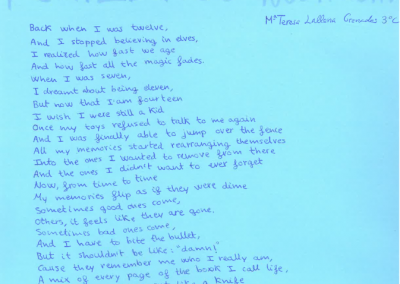 Mª Teresa Lallana Granados 3ºC
Back when I was twelve,
And I stopped believing in elves,
I realized how fast we age
And how fast all the magic fades.
When I was seven,
I dreamt about being eleven,
But now that I am fourteen
I wish I were still a kid.
Once my toys refused to talk to me again
And I was finally able to jump over the fence
All my memories started rearranging themselves
Into the ones I wanted to remove from there
And the ones I didn't want to ever forget
Now, from time to time
My memories flip as if they were dime
Sometimes good ones come,
Others, it feels like they are gone.
Sometimes bad ones come,
And I have to bite the bullet,
But it shouldn't be like: "damn!"
Cause they remember me who I really am,
A mix of every page of the book I call life,
like a knife